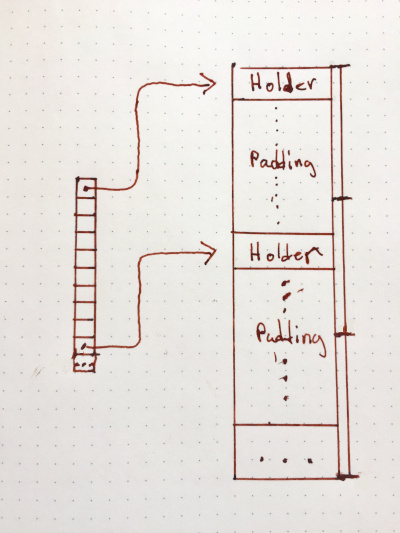 Holder
Padding
Holder
Padding
...
...